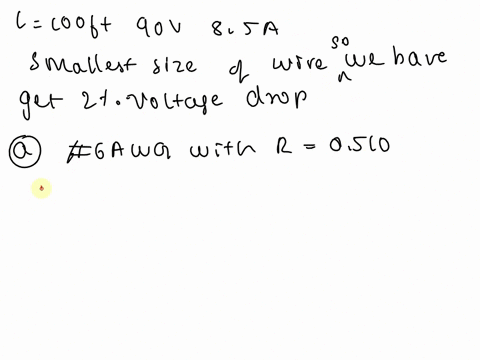 L = 100ft 90V 8.5A
smallest size of wire so we have
get 2%. voltage drop
a #6AWG with R = 0.510